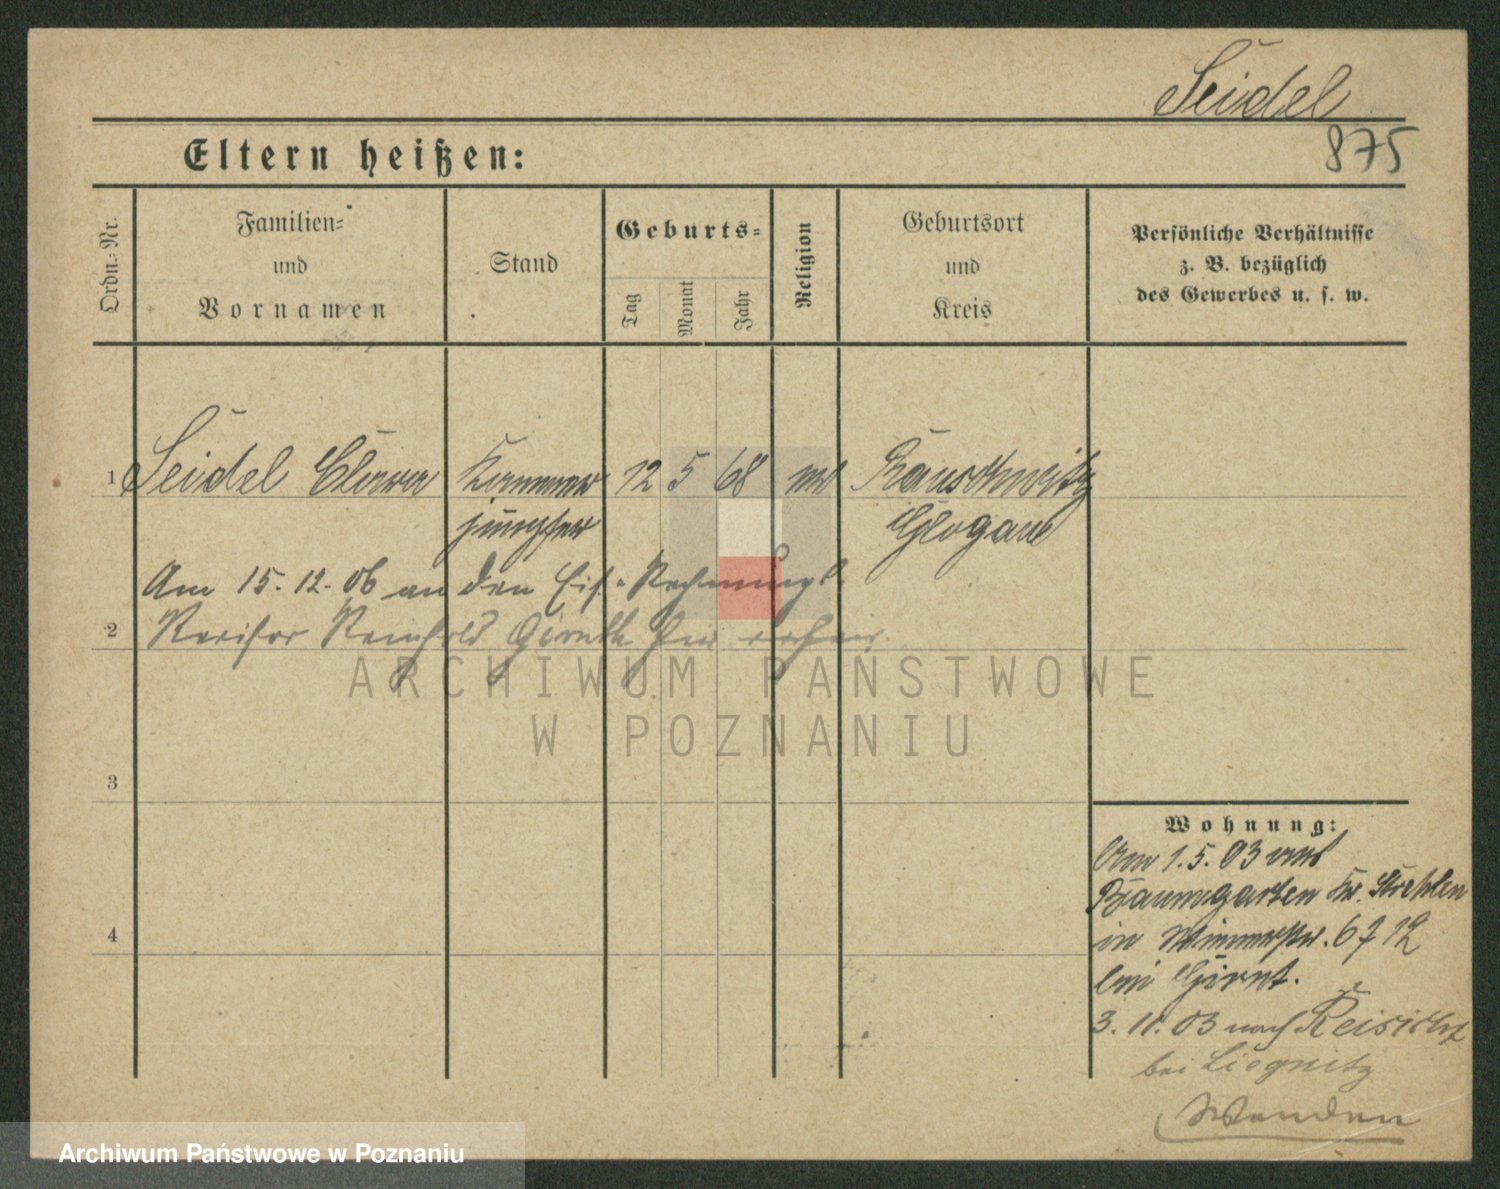 Seidel
875
Eltern heißen:
Ordn.-Nr.
Familien-
und
Vornamen
Stand
Geburts-
Tag
Monat
Jahr
Religion
Geburtsort
und
Kreis
Persönliche Verhältnisse
z. B. bezüglich
des Gewerbes u. s. w.
1 Seidel Clara Kammer 12 5 68 Rauschwitz
jungfer Glogau
Am 15.12.06 an den Eis.-Rechnungs-
2 Revisor Reinhold
ARCHIWUM PAŃSTWOWE
W POZNANIU
3
Wohnung:
Am 1.5.03 aus
Baumgarten Kr. Strehlen
4
in
bei Girnt.
3.11.03 nach Reisicht
bei Liegnitz
Wenden
Archiwum Państwowe w Poznaniu